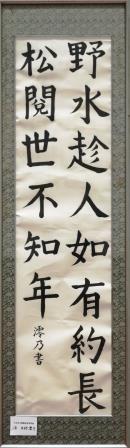 野水趁人如有約長
松閲世不知年
澪乃書